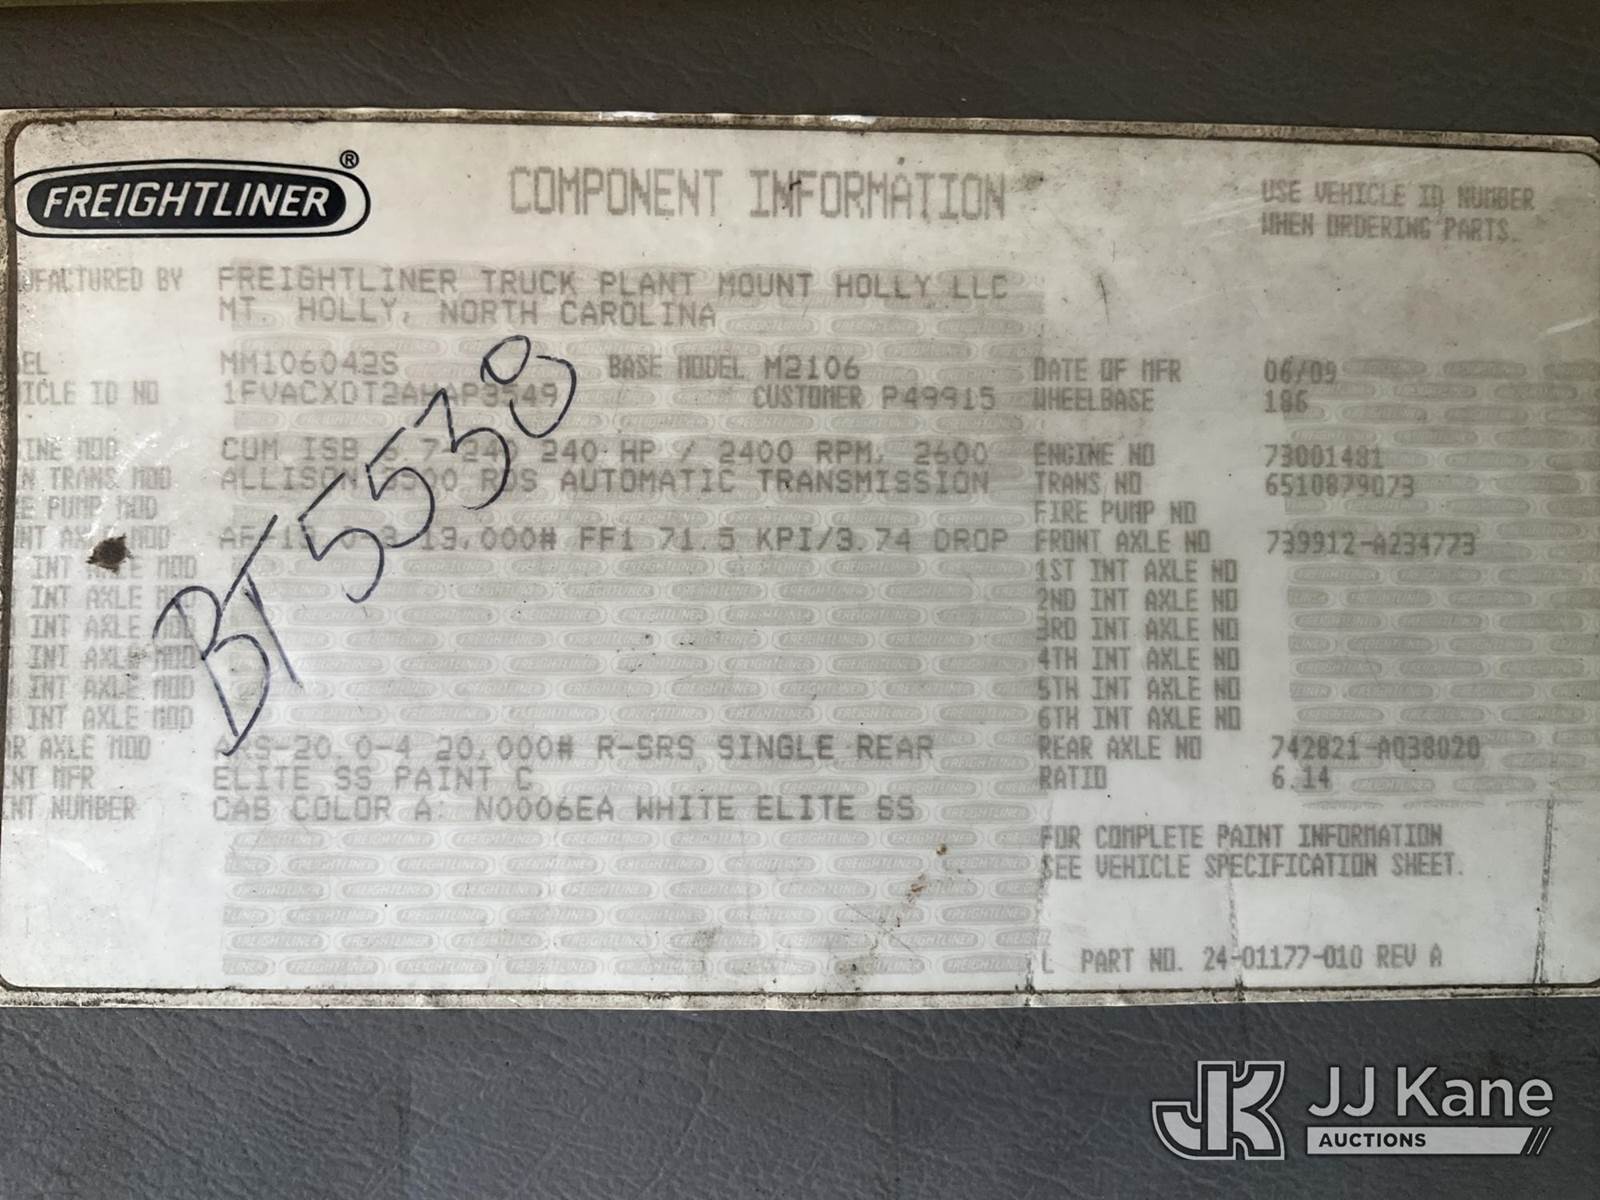 FREIGHTLINER ®
COMPONENT INFORMATION
USE VEHICLE ID NUMBER
WHEN ORDERING PARTS.
UFACTURED BY FREIGHTLINER TRUCK PLANT MOUNT HOLLY LLC
MT. HOLLY, NORTH CAROLINA
EL MM106042S BASE MODEL M2106 DATE OF MFR 06/09
ICLE ID NO 1FVACXDT2AHAP3549 CUSTOMER P49915 WHEELBASE 186
INE MOD CUM ISB 6.7-240 240 HP / 2400 RPM, 2600 ENGINE NO 73001481
N TRANS MOD ALLISON 3500 RDS AUTOMATIC TRANSMISSION TRANS NO 6510879073
E PUMP MOD FIRE PUMP NO
NT AXLE MOD AF-13.0-3 13,000# FF1 71.5 KPI/3.74 DROP FRONT AXLE NO 739912-A234773
INT AXLE MOD 1ST INT AXLE NO
INT AXLE MOD 2ND INT AXLE NO
INT AXLE MOD 3RD INT AXLE NO
INT AXLE MOD 4TH INT AXLE NO
INT AXLE MOD 5TH INT AXLE NO
INT AXLE MOD 6TH INT AXLE NO
R AXLE MOD ARS-20.0-4 20,000# R-SRS SINGLE REAR REAR AXLE NO 742821-A038020
NT MFR ELITE SS PAINT C RATIO 6.14
NT NUMBER CAB COLOR A: N0006EA WHITE ELITE SS
FOR COMPLETE PAINT INFORMATION
SEE VEHICLE SPECIFICATION SHEET.
L PART NO. 24-01177-010 REV A
BT5538
JK JJ Kane
AUCTIONS